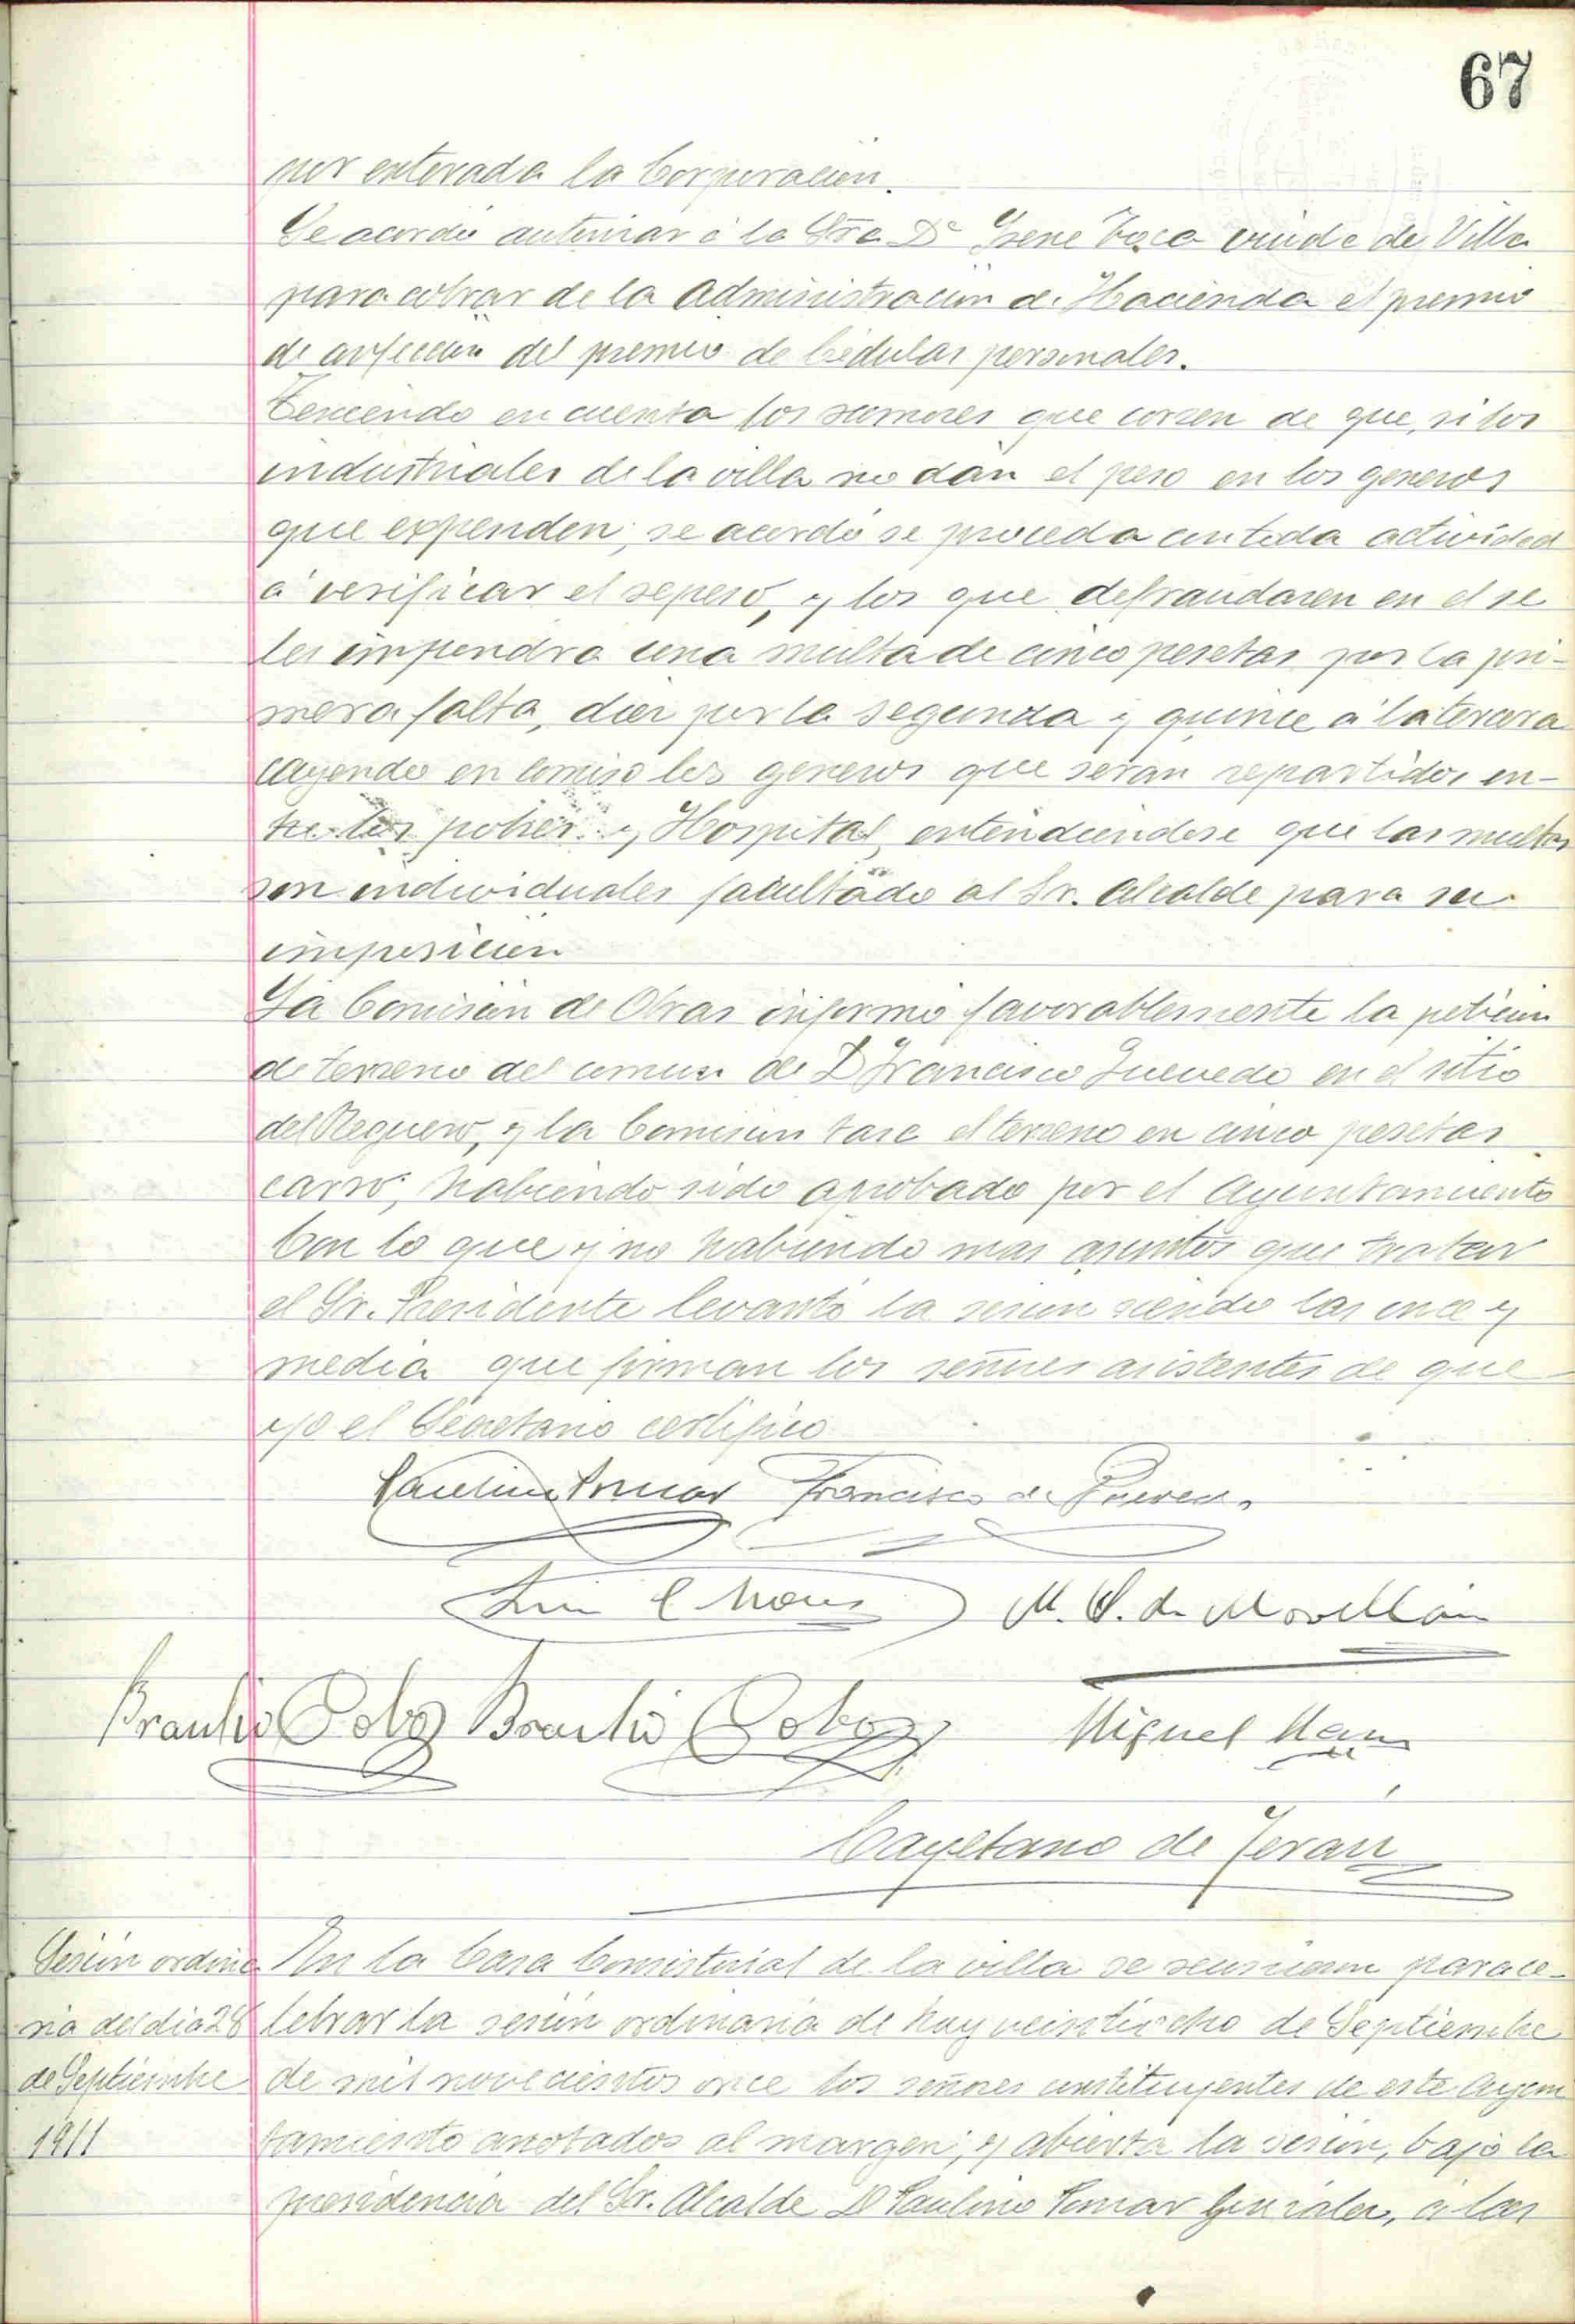 67
por enterada la Corporacion.
Se acordó autorizar á la Sra Dª Irene Vaca viuda de Villa
para cobrar de la Administracion de Hacienda el premio
de confeccion del premio de Cédulas personales.
Teniendo en cuenta los rumores que corren de que, si los
industriales de la villa no dan el peso en los generos
que expenden; se acordó se proceda con toda actividad
á verificar el repeso, y los que defraudaren en el se
les impondra una multa de cinco pesetas por la pri-
mera falta, diez por la segunda y quince á la tercera
cayendo en comiso los generos que seran repartidos en-
tre los pobres y Hospital, entendiendose que las multas
son individuales facultado al Sr. Alcalde para su
imposicion
La Comision de Obras informó favorablemente la peticion
de terreno del comun de D Francisco Quevedo en el sitio
del Reguero, y la Comision tasa el terreno en cinco pesetas
carro, habiendo sido aprobado por el Ayuntamiento
Con lo que y no habiendo mas asuntos que tratar
el Sr. Presidente levantó la sesion siendo las once y
media que firman los señores asistentes de que
yo el Secretario certifico
Paulino Francisco de
M. S. de Movellan
Braulio Cobo Braulio Cobo Miguel
Cayetano de Teran
Sesion ordina
ria del dia 28
de Septiembre
1911
En la Casa Consistorial de la villa se reunieron para ce-
lebrar la sesion ordinaria de hoy veintiocho de Septiembre
de mil novecientos once los señores constituyentes de este Ayun
tamiento anotados al margen; y abierta la sesion, bajo la
presidencia del Sr. Alcalde D Paulino Gonzalez, á las